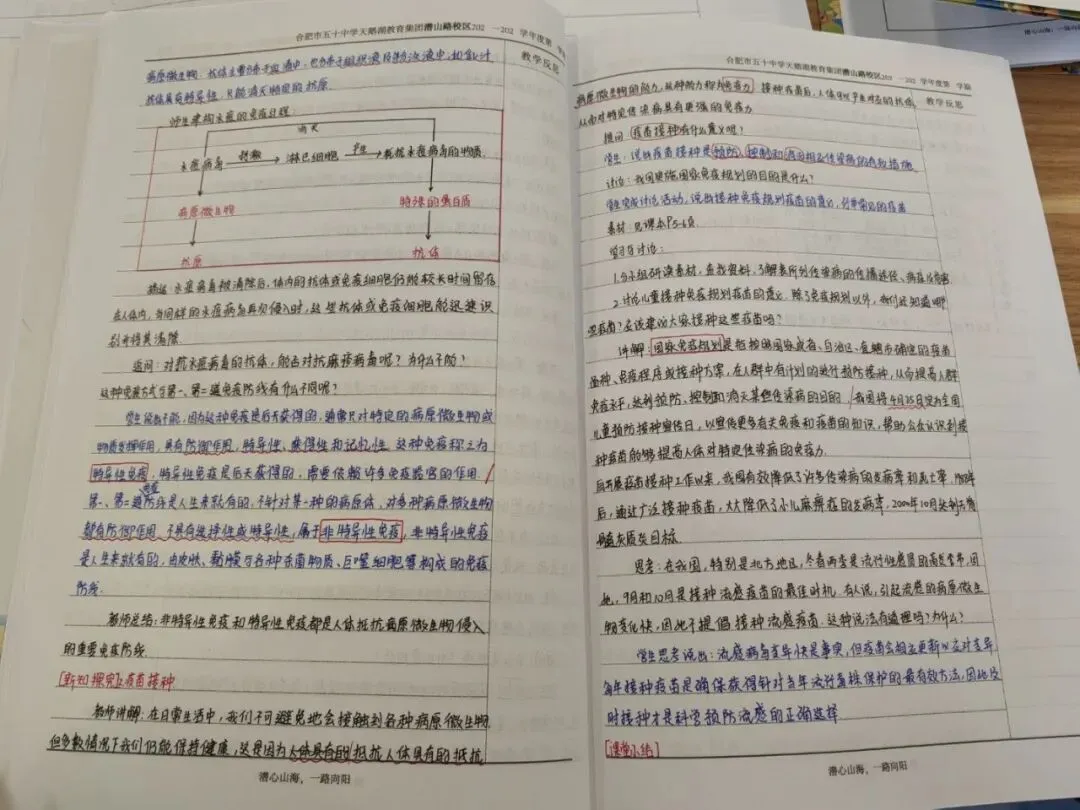 合肥市五十中学天鹅湖教育集团潜山路校区202 —202 学年度第 学
教学反思
病原微生物。抗体主要分布于血清中,也分布于组织液及外分泌液中,如乳汁
抗体具有特异性,只能消灭特定的抗原.
师生建构水痘的免疫过程:
消灭
水痘病毒 刺激 淋巴细胞 产生 抵抗水痘病毒的物质.
病原微生物 特殊的蛋白质
抗原 抗体
描述:水痘病毒被清除后,体内的抗体或免疫细胞仍能较长时间留存
在人体内,当同样的水痘病毒再次侵入时,这些抗体或免疫细胞能迅速识
别并将其清除.
追问:对抗水痘病毒的抗体,能否对抗麻疹病毒呢?为什么不能?
这种免疫方式与第一、第二道免疫防线有什么不同呢?
学生说出不能,因为这种免疫是后天获得的,通常只对特定的病原微生物或
物质发挥作用,具有防御作用、特异性、获得性和记忆性.这种免疫称之为
特异性免疫.特异性免疫是后天获得的,需要依赖许多免疫器官的作用.
第一、第二道防线是人生来就有的,不针对某一种的病原体,对多种病原微生物
都有防御作用,不具有选择性或特异性,属于非特异性免疫,非特异性免疫
是人生来就有的,由皮肤、黏膜与各种杀菌物质、巨噬细胞等构成的免疫
防线.
教师总结:非特异性免疫和特异性免疫都是人体抵抗病原微生物侵入
的重要免疫防线.
[新知探究]2疫苗接种
教师讲解:在日常生活中,我们不可避免地会接触到各种病原微生物.
但多数情况下我们仍能保持健康,这是因为人体具有的抵抗人体具有的抵抗
潜心山海,一路向阳
合肥市五十中学天鹅湖教育集团潜山路校区202 —202 学年度第 学期
教学反思
病原微生物的能力,这种能力称为免疫力 接种疫苗后,人体可以产生对应的抗体,
从而对特定传染病具有更强的免疫力
提问:疫苗接种有什么意义呢?
学生:说出疫苗接种是预防、控制和消灭相应传染病的有效措施
讨论:我国实施国家免疫规划的目的是什么?
学生完成讨论活动,说出接种免疫规划疫苗的意义,分享常见的疫苗
素材:见课本P5-6页.
学习与讨论:
1.分小组研读素材,查找资料,了解表所列传染病的传播途径、病症及危害.
2.讨论儿童接种免疫规划疫苗的意义.除了免疫规划以外,我们还知道哪
些疫苗?应该建议大家接种这些疫苗吗?
讲解:国家免疫规划是指按照国家或省、自治区、直辖市确定的疫苗
品种、免疫程序或接种方案,在人群中有计划的进行预防接种,从而提高人群
免疫水平,达到预防、控制和消灭某些传染病的目的./我国将4月25日定为全国
儿童预防接种宣传日,以宣传更多有关免疫和疫苗的知识,帮助公众认识到接
种疫苗能够提高人体对特定传染病的免疫力.
自开展疫苗接种工作以来,我国有效降低了许多传染病的发病率和死亡率.
后,通过广泛接种疫苗,大大降低了小儿麻痹症的发病率,2000年10月达到无脊
髓灰质炎目标.
思考:在我国,特别是北方地区,冬春两季是流行性感冒的高发季节,因
此,9月和10月是接种流感疫苗的最佳时机,有人说,引起流感的病原微生
物变化快,因此不提倡接种流感疫苗.这种说法有道理吗?为什么?
学生思考说出:流感病毒变异快是事实,但疫苗会相应更新以应对变异
每年接种疫苗是确保获得针对当年流行毒株保护的最有效方法,因此及
时接种才是科学预防流感的正确选择
[课堂小结]
潜心山海,一路向阳